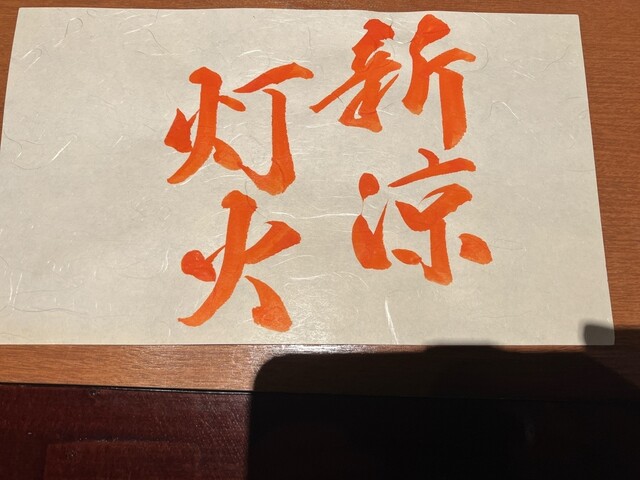 新涼
灯火